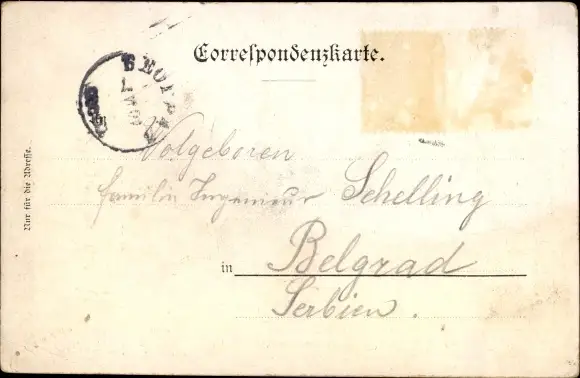 Correspondenzkarte.
Nur für die Adresse.
Volgeboren
Familin Ingenieur Schelling
in Belgrad
Serbien.